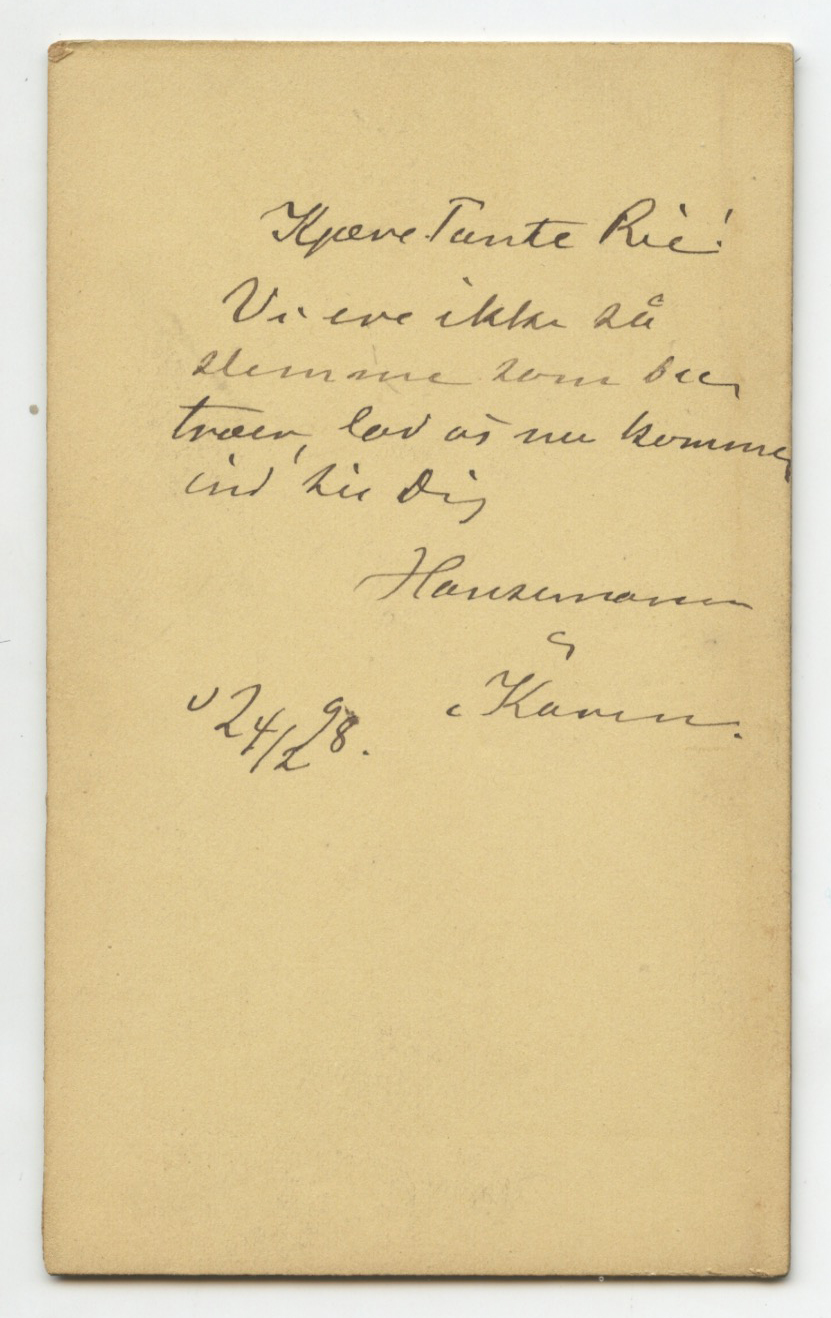 Kjære Tante Rie!
Vi ere ikke så
slemme som Du
troer, lad os nu komme
ind til Dig
Hansemann
og
Karen.
24/2 98.